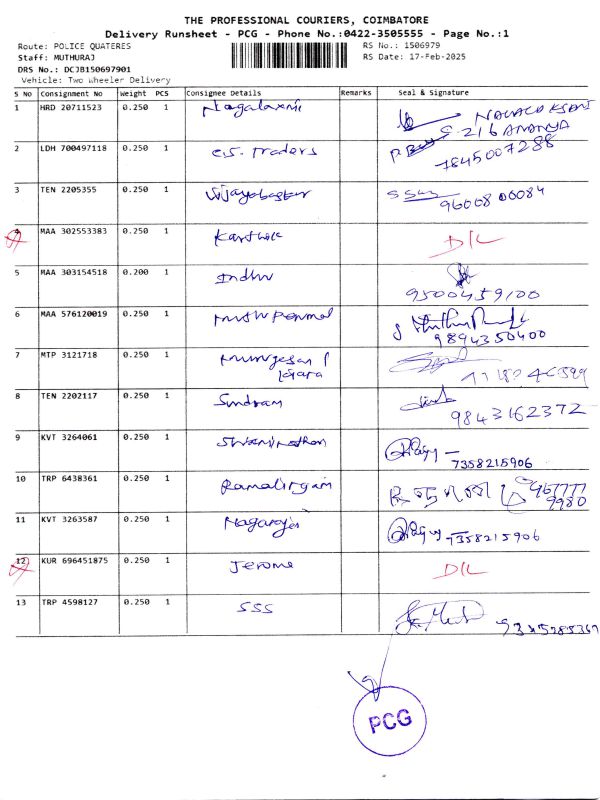 THE PROFESSIONAL COURIERS, COIMBATORE
Delivery Runsheet - PCG - Phone No.:0422-3505555 - Page No.:1
Route: POLICE QUATERES
RS No.: 1506979
Staff: MUTHURAJ
RS Date: 17-Feb-2025
DRS No.: DCJB150697901
Vehicle: Two Wheeler Delivery
S NO Consignment No Weight PCS Consignee Details Remarks Seal & Signature
1 HRD 20711523 0.250 1 Nagalaxmi
S-216 ANANYA
2 LDH 700497118 0.250 1 C.S. Traders
7845007288
3 TEN 2205355 0.250 1 Vijayabaskar
9600800084
4 MAA 302553383 0.250 1 Karthik D/L
5 MAA 303154518 0.200 1 Indhu
9500459100
6 MAA 576120019 0.250 1 Muthu Perumal
9894350400
7 MTP 3121718 0.250 1 Murugesan P
8 TEN 2202117 0.250 1 Sundram
9843162372
9 KVT 3264061 0.250 1 Swaminathan
7358215906
10 TRP 6438361 0.250 1 Ramalingam
11 KVT 3263587 0.250 1 Nagarajan
7358215906
12 KUR 696451875 0.250 1 Jerome D/L
13 TRP 4598127 0.250 1 SSS
PCG